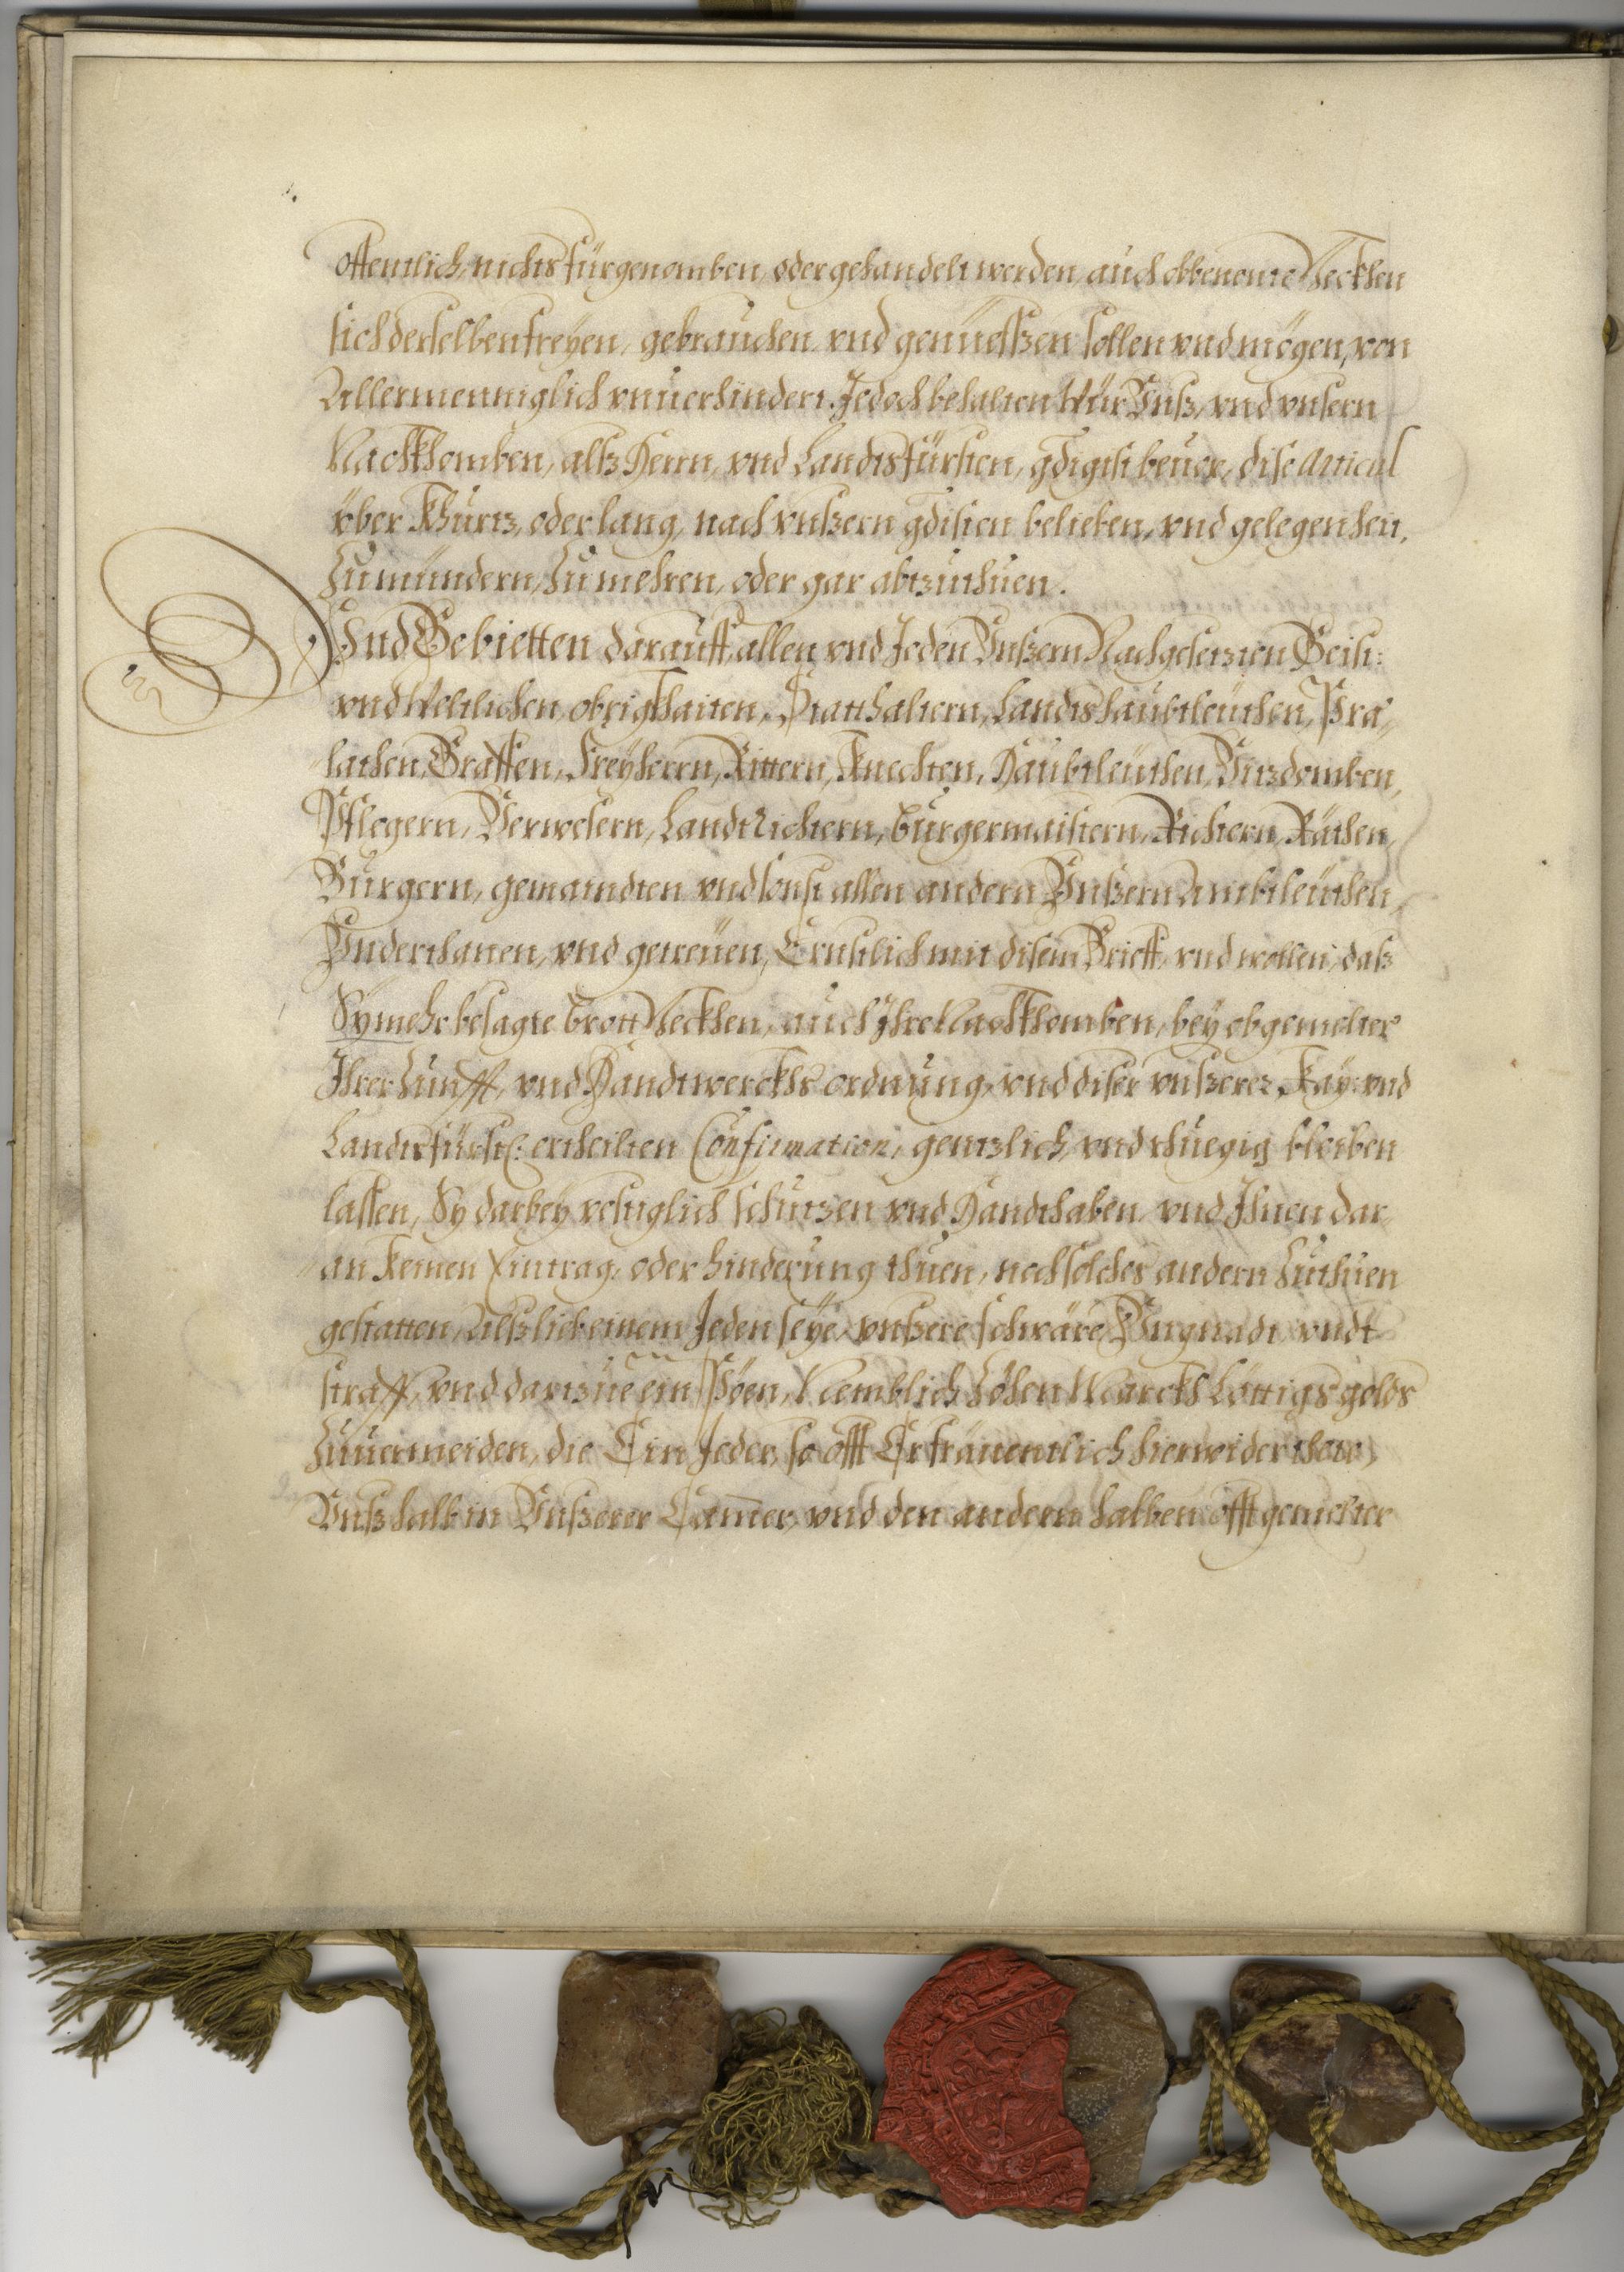 offentlich, nichts fürgenomben, oder gehandelt werden, auch obbenente Peckhen
sich derselben freyen, gebrauchen vnd genüessen sollen vnd mögen, von
Allermenniglich vnuerhindert. Jedoch behalten Wür Vnß, vnd vnsern
Nachkhomben, alß Herrn, vnd Landtsfürsten, gdigist beuor, dise Articul
über khurtz, oder lang, nach vnßern gdisten belieben, vnd gelegenheit,
Zu mündern, Zu mehren, oder gar abtzuthuen.
Vnd Gebietten darauff, allen vnd Jeden Vnßern Nachgesetzten Geist:
vnd Weltlichen obrigkhaiten, Statthaltern, Landtshaubtleüthen, Præ„
„lathen, Graffen, Freyherrn, Rittern, Knechten, Haubtleüthen, Vitzdomben,
Pflegern, Verwesern, Landtrichtern, Burgermaistern, Richtern, Räthen,
Burgern, gemaindten vnd sonst allen andern Vnßern Ambtleüthen,
Vnderthanen, vnd getreüen, Ernstlich mit disem Brieff, vnd wollen, daß
Sy mehr besagte Brott Peckhen, auch Ihre Nachkhomben, bey obgemelter
Ihrer Zunfft, vnd Handtwerckhs ordnung, vnd diser vnßerer, Kay: vnd
Landtsfürstl: ertheilten Confirmation, gentzlich, vnd rhuegig bleiben
lassen, Sy darbey vestiglich schützen vnd Handthaben, vnd Ihnen dar„
„an keinen Eintrag, oder hinderung thuen, noch solches andern Zuthuen
gestatten, Alß lieb einem Jeden seye, vnßere schwäre Vngnadt, vndt
straff, vnd dartzue ein Pöen, Nemblich Zöhen Marckh Löttigs golds
Zuuermeiden, die Ein Jeder, so offt Er fräuentlich hierwider thete,
Vnß halb in Vnßerer Camer, vnd den andern halben offtgemelter